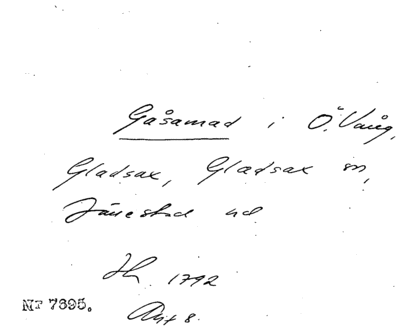 Gåsamad i Ö. Vång,
Gladsax, Gladsax sn,
Järrestad hd
1792
Akt 8.
Nr 7695.